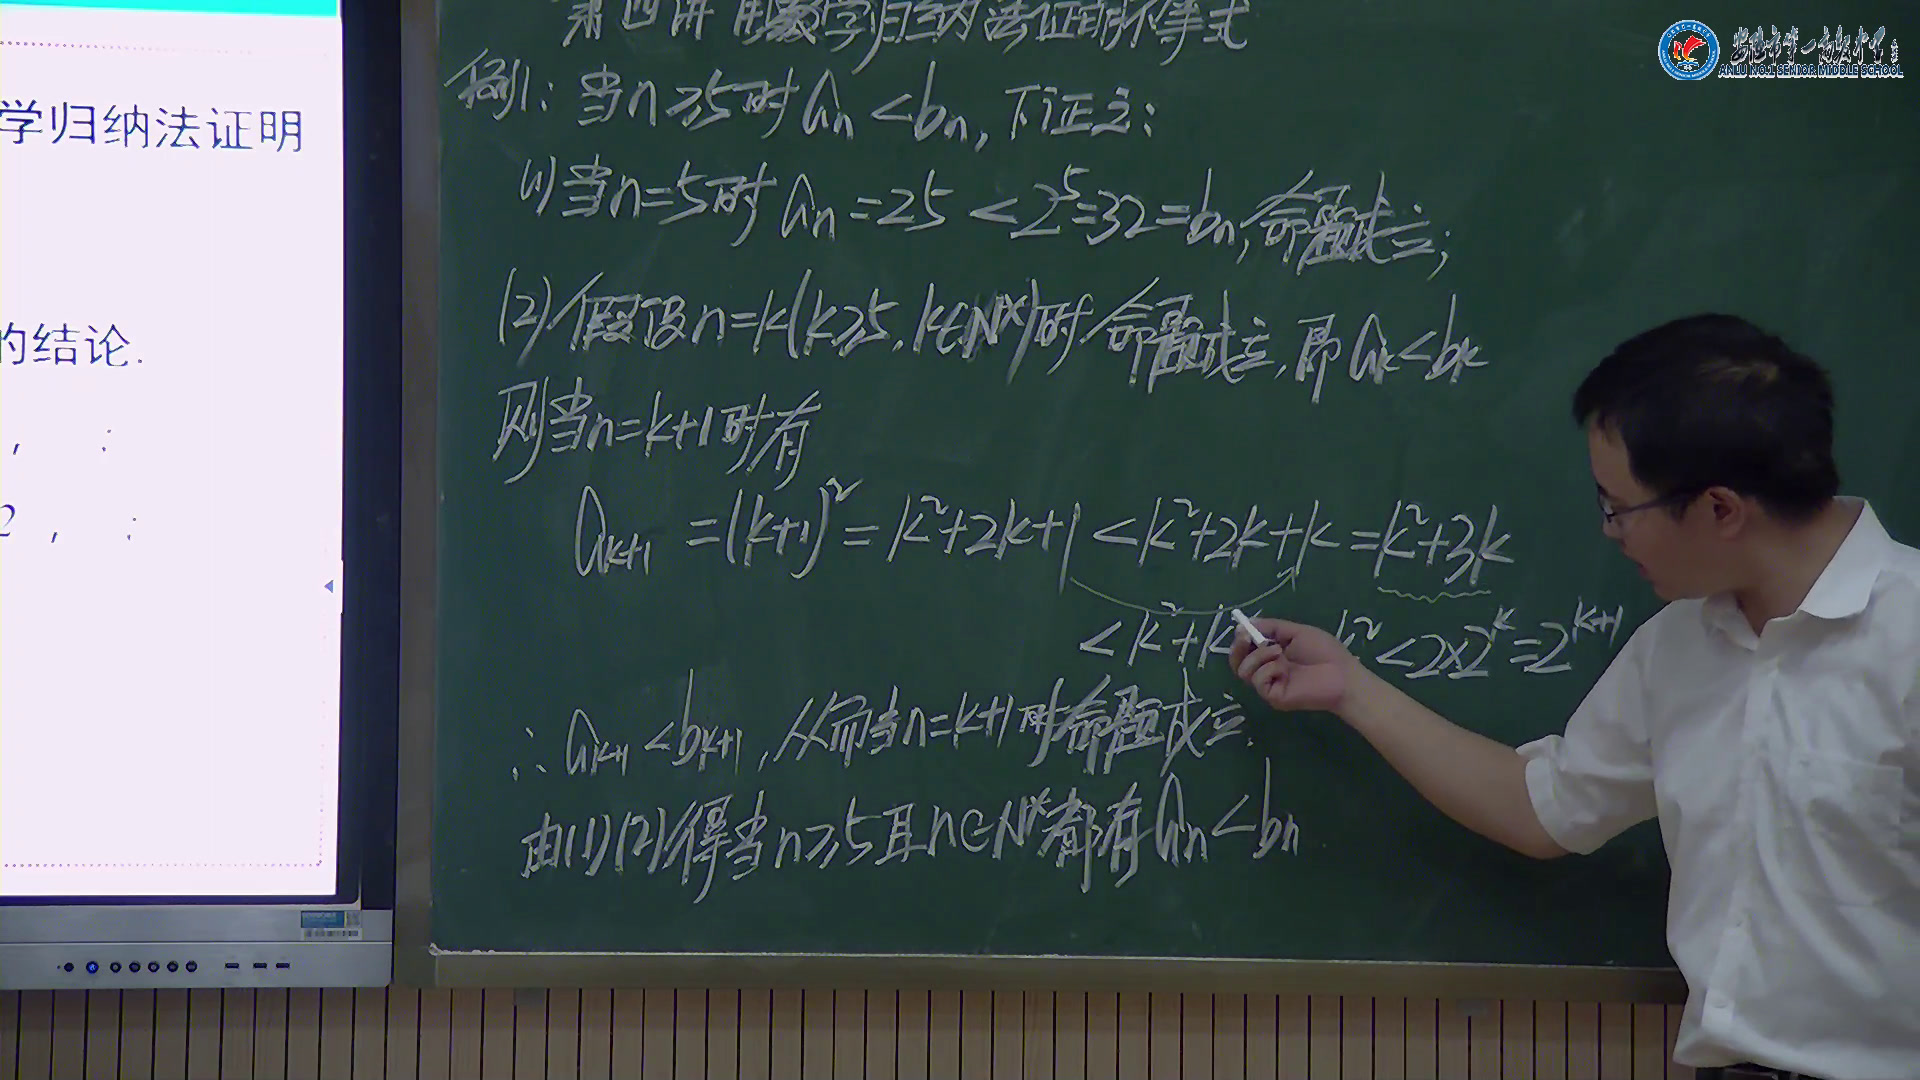 第四讲 用数学归纳法证明不等式
例1: 当n≥5时 aₙ<bₙ, 下证之:
(1)当n=5时 aₙ=25<2⁵=32=bₙ, 命题成立;
(2)假设n=k(k≥5, k∈N*)时命题成立, 即aₖ<bₖ
则当n=k+1时有
aₖ₊₁=(k+1)²=k²+2k+1<k²+2k+k=k²+3k
<k²+k k²<2×2ᵏ=2ᵏ⁺¹
∴aₖ₊₁<bₖ₊₁, 从而当n=k+1时命题成立.
由(1)(2)得当n≥5且n∈N*都有aₙ<bₙ
学归纳法证明
的结论.
, ;
2 , ;
安陆市第一高级中学
ANLU NO.1 SENIOR MIDDLE SCHOOL